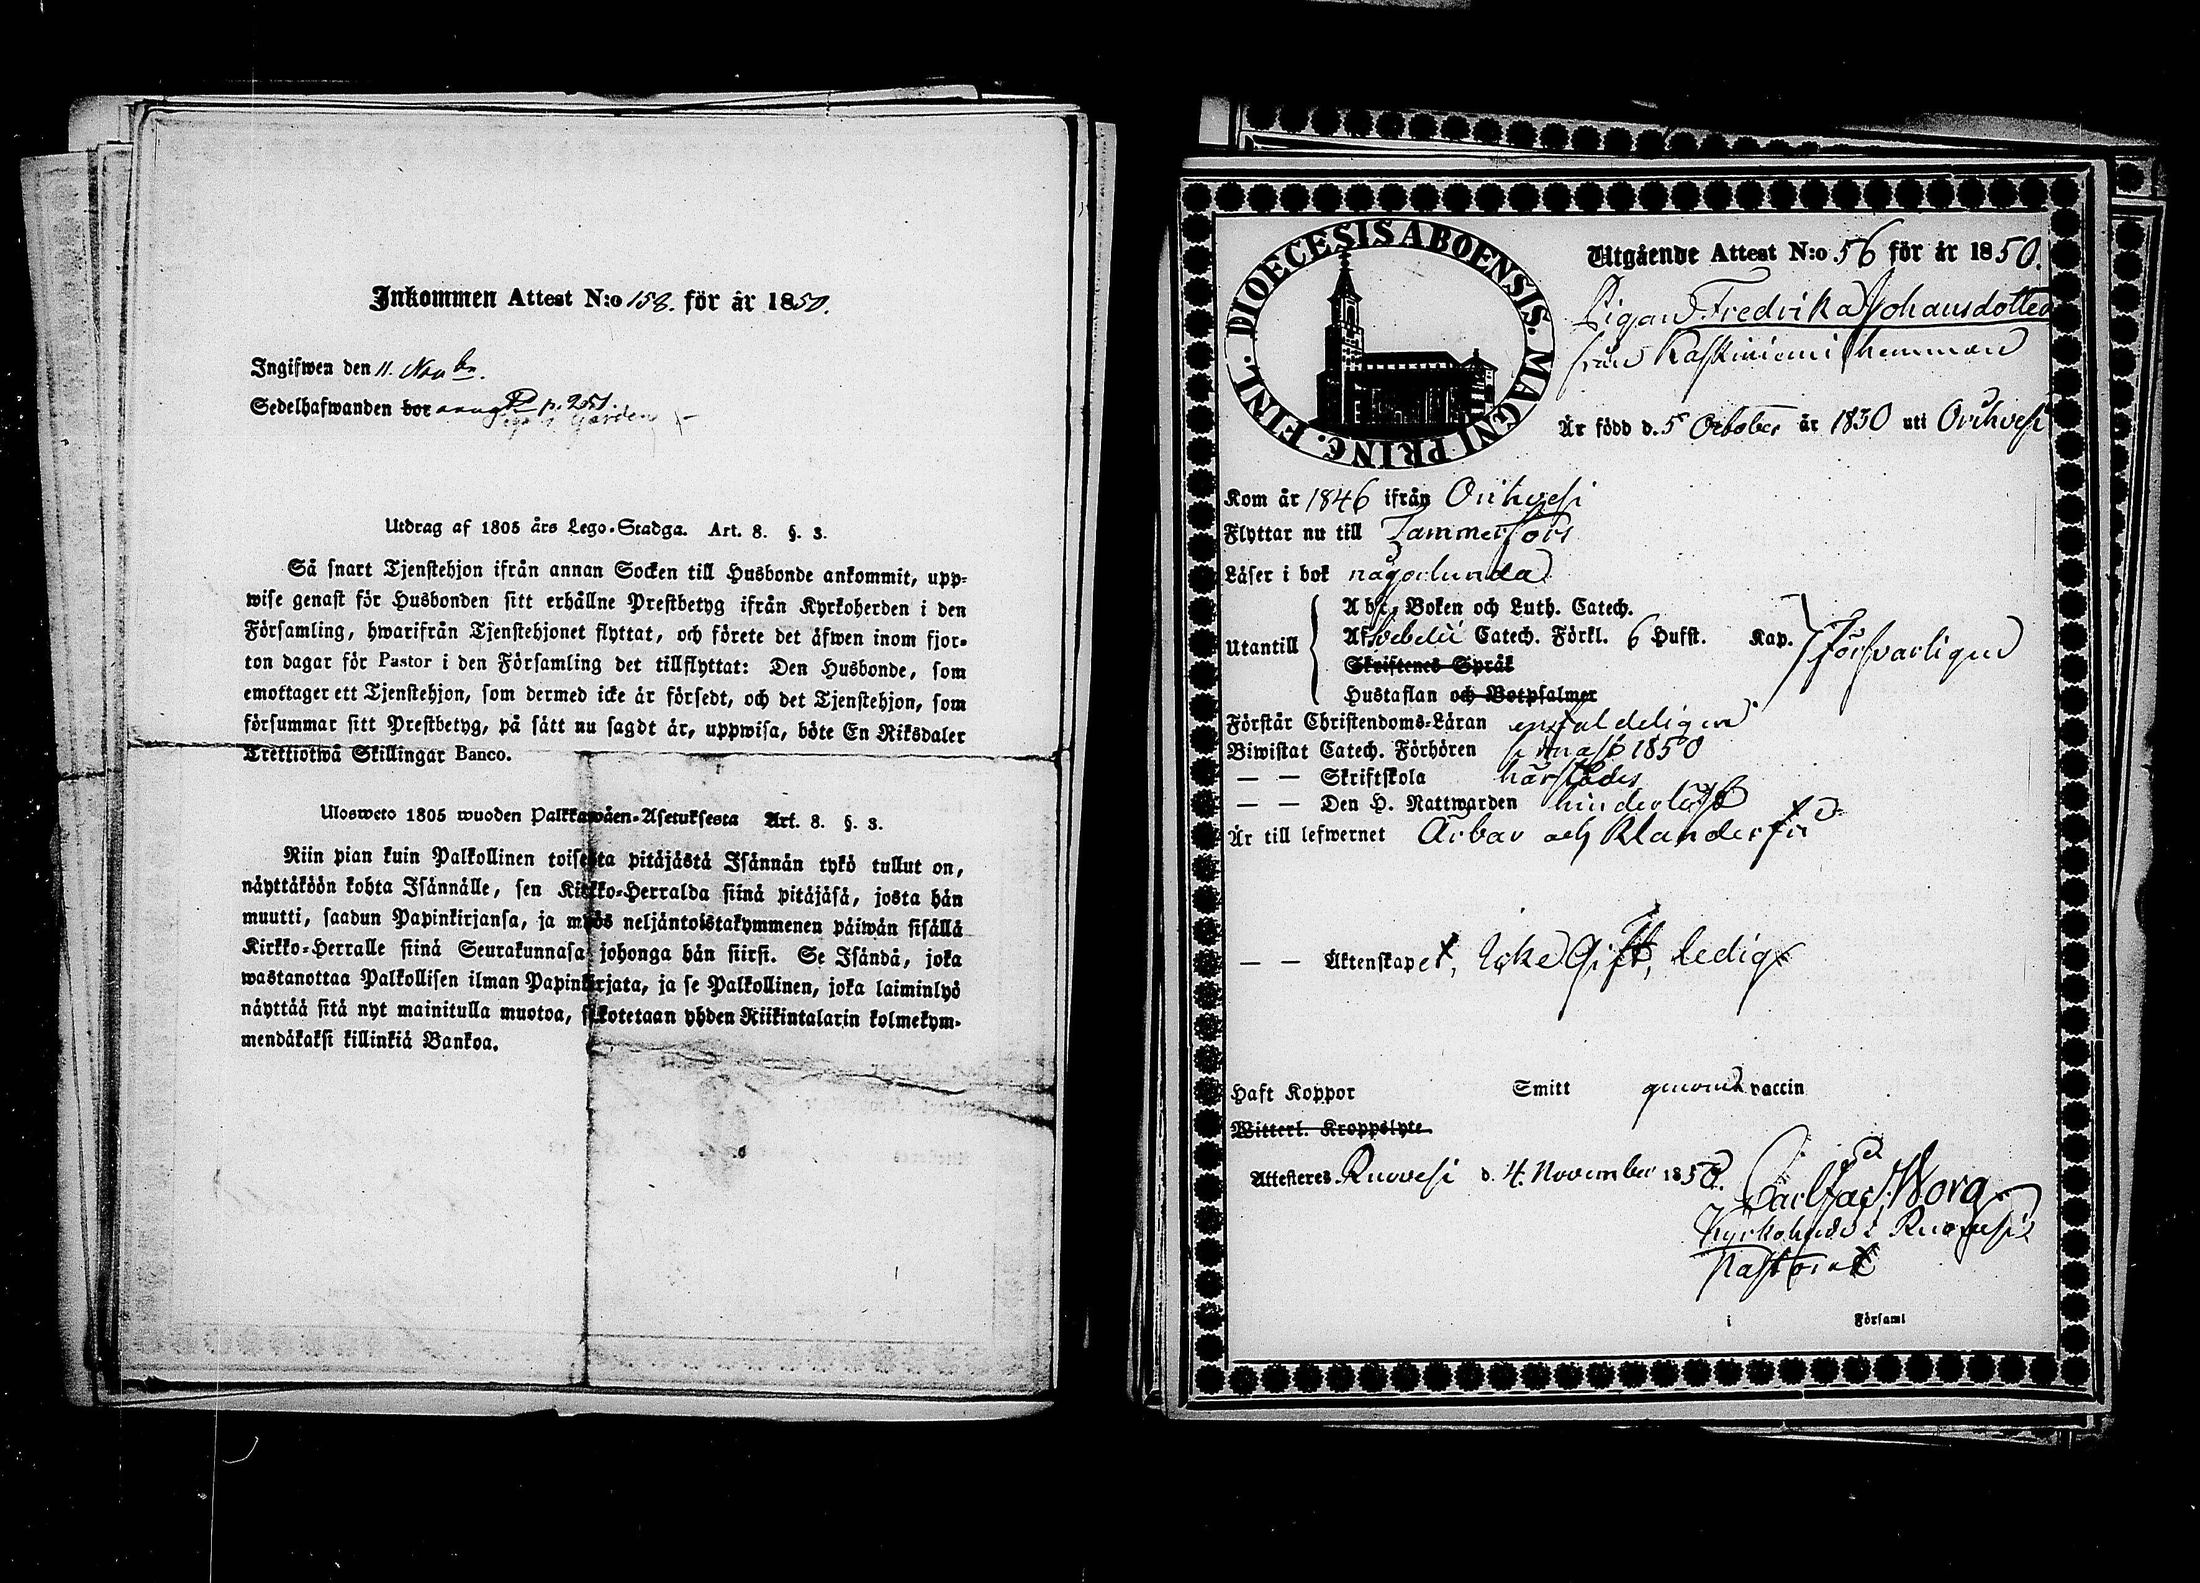 Inkommen Attest N:o 158. för år 1850.
Ingifwen den 11. Nov br.
Sedelhafwanden bor p. 251.
Utdrag af 1805 års Lego-Stadga. Art. 8. §. 3.
Så snart Tjenstehjon ifrån annan Socken till Husbonde ankommit, upp-
wise genast för Husbonden sitt erhållne Prestbetyg ifrån Kyrkoherden i den
Församling, hwarifrån Tjenstehjonet flyttat, och förete det äfwen inom fjor-
ton dagar för Pastor i den Församling det tillflyttat: Den Husbonde, som
emottager ett Tjenstehjon, som dermed icke är försedt, och det Tjenstehjon, som
försummar sitt Prestbetyg, på sätt nu sagdt är, uppwisa, böte En Riksdaler
Trettiotwå Skillingar Banco.
Ulosweto 1805 wuoden Palkkawäen-Asetuksesta Art. 8. §. 3.
Niin pian kuin Palkollinen toisesta pitäjästä Isännän tykö tullut on,
näyttäköön kohta Isännälle, sen Kirkko-Herralda siinä pitäjäsä, josta hän
muutti, saadun Papinkirjansa, ja myös neljäntoistakymmenen päiwän sisällä
Kirkko-Herralle siinä Seurakunnasa johonga hän siirsi. Se Isändä, joka
wastanottaa Palkollisen ilman Papinkirjata, ja se Palkollinen, joka laiminlyö
näyttää sitä nyt mainitulla muotoa, sakotetaan yhden Riikintalarin kolmekym-
mendäkaksi killinkiä Bankoa.
DIOECESIS ABOENSIS. MAGNI PRINC. FINL.
Utgående Attest N:o 56 för år 1850.
Pigan Fredrika Johansdotter
från Kaskiniemi hemman
Är född d. 5 October år 1830 uti Orihvesi
Kom år 1846 ifrån Orihvesi
Flyttar nu till Tammerfors
Läser i bok någorlunda
Utantill
Abc, Boken och Luth. Catech.
Af Svebelii Catech. Förkl. 6 Hufst. Kap.
Skriftenes Språk
Hustaflan och Botpsalmer
Försvarligen
Förstår Christendoms-Läran enfaldeligen
Biwistat Catech. Förhören sednast 1850
— — Skriftskola härstädes
— — Den H. Nattwarden hinderlöst
Är till lefwernet Ärbar och Klanderfri
— — Äktenskapet, Icke Gift, ledig
Haft Koppor Smitt genom vaccin
Witterl. Kroppslyte
Attesteres Ruovesi d. 4. November 1850.
Carl Jac. Worg
Kyrkoherde i Ruovesi
Pastorat
i Församl